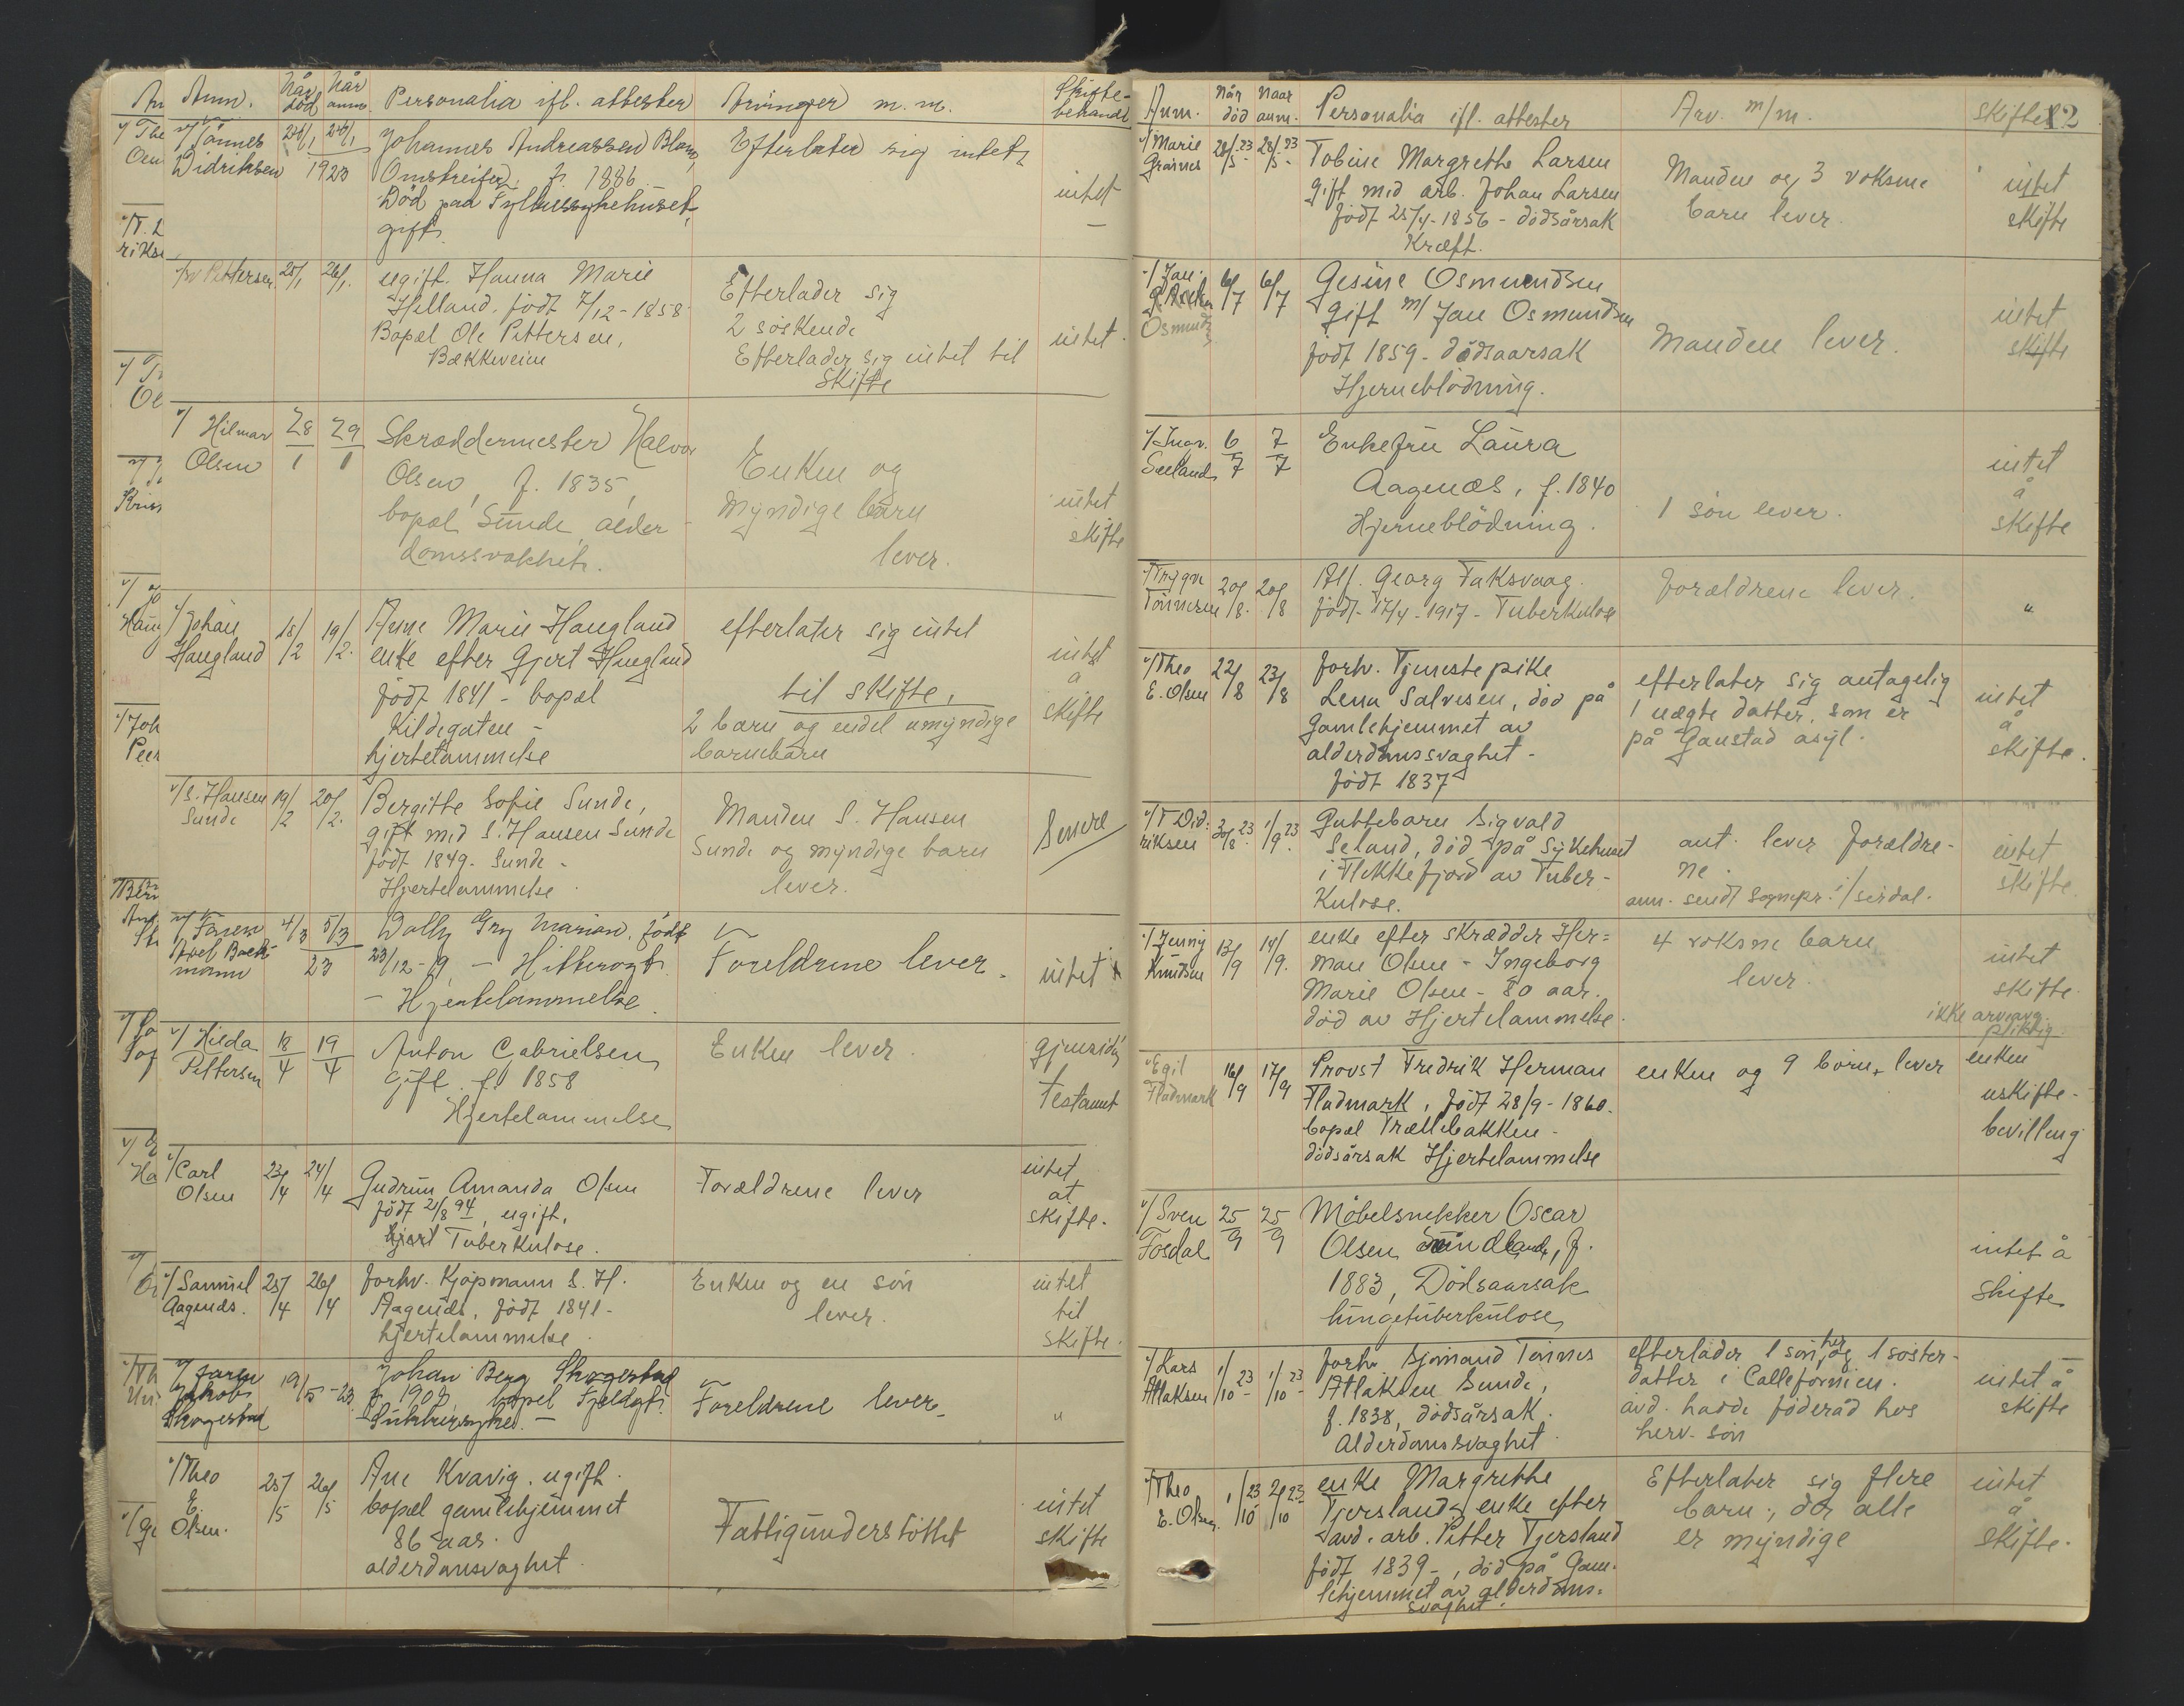 Anm. Når død Når anm. Personalia ifl. attester Arvinger m. m. Skifte-behandl
v/ Tønnes Didriksen 24/1 24/1 1923 Johannes Andreassen
Omstreifer, f. 1886.
Død paa Sykehuset
gift.
Efterlater sig intet
intet
Pettersen 25/1 26/1. ugift. Hanna Marie
Helland, født 7/12-1858
Bopæl Ole Pettersen,
Bækkeveien
Efterlader sig
2 søskende
Efterlader sig intet til
skifte
intet.
v/ Hilmar Olsen 28/1 29/1 Skræddermester Halvor
Olsen, f. 1835,
bopæl Sunde, alder-
domssvakhet.
Enken og
myndige barn
lever.
intet
skifte
v/ Johan Haugland 18/2 19/2. Anne Marie Haugland
enke efter Gjert Haugland
født 1841 - bopæl
Kildegaten -
hjertelammelse
efterlater sig intet
til skifte,
2 barn og endel umyndige
barnebarn
intet
å
skifte
v/ S. Hansen Sunde 19/2 20/2. Bergitte Sofie Sunde,
gift med S. Hansen Sunde
født 1849. Sunde -
Hjertelammelse.
Manden S. Hansen
Sunde og myndige barn
lever.
Senere
4/3 5/3 23 Dolly Gry Marion, født
23/12-19 - Hitterøgt.
- Hjertelammelse.
Foreldrene lever.
intet
v/ Hilda Pettersen 18/4 19/4 Anton Gabrielsen
gift. f. 1858
Hjertelammelse
Enken lever.
gjensidig
testament
v/ Carl Olsen 23/4 24/4 Gudrun Amanda Olsen
født 21/8 94, ugift,
Tuberkulose.
Forældrene lever
intet
at
skifte.
v/ Samuel Aagenæs. 25/4 26/4 forhv. Kjøpmann S. H.
Aagenæs, født 1841-
hjertelammelse.
Enken og en søn
lever.
intet
til
skifte.
v/ Jakob Skogestad 19/5-23. Johan Berg Skogestad
f. 1908 bopel Fjeldgt.
Sukkersyke. -
Foreldrene lever.
"
v/ Theo E. Olsen. 25/5 26/5 Ane Kvavig. ugift.
bopæl gamlehjemmet
86 aar.
alderdomsvaghet.
Fattigunderstøttet
intet
skifte
Anm. Når død Naar anm. Personalia ifl. attester Arv. m/m. skifte 12
v/ Marie Grønnes 28/5 23 28/5 23 Tobine Margrethe Larsen
gift med arb. Johan Larsen
født 25/4-1856 - dødsårsak
Kræft.
Manden og 3 voksne
barn lever.
intet
skifte
v/ Jan Osmunds 6/7 6/7 Gesine Osmundsen
gift m/ Jan Osmundsen
født 1859 - dødsaarsak
Hjerneblødning.
Manden lever.
intet
skifte
v/ Ingv. Seeland 6/7 7/7 Enkefru Laura
Aagenæs, f. 1840
Hjerneblødning.
1 søn lever.
intet
å
skifte
v/ Trygve Tønnesen 20/8. 20/8 Alf. Georg Faksvaag.
født 17/4-1917 - Tuberkulose
Forældrene lever.
"
v/ Theo E. Olsen 22/8 23/8 forhv. Tjenestepike
Lena Salvesen, død på
Gamlehjemmet av
alderdomssvaghet -
født 1837
efterlater sig antagelig
1 uægte datter, som er
på Gaustad asyl.
intet
å
skifte.
v/ T. Didriksen 30/8 23 1/9 23 Guttebarn Sigvald
Seland, død på Sykehuset
i Flekkefjord av Tuber-
kulose.
ant. lever forældre-
ne.
anm. sendt sognepr. i/ Sirdal.
intet
skifte.
v/ Jenny Knutsen 13/9 14/9. enke efter skrædder Her=
man Olsen - Ingeborg
Marie Olsen - 80 aar.
død av Hjertelammelse.
4 voksne barn
lever.
intet
skifte.
ikke arveavg.
pliktig.
v/ Egil Fladmark 16/9 17/9 Provst Fredrik Herman
Fladmark, født 28/9-1860.
bopæl Trællebakken -
dødsårsak Hjertelammelse
enken og 9 børn lever
enken
uskifte-
bevilling
v/ Sven Fosdal 25/9 25/9 Møbelsnekker Oscar
Olsen Sundland, f.
1883, Dødsaarsak
lungetuberkulose
intet å
skifte
v/ Lars Atlaksen 1/10 23 1/10 23 forhv. sjømand Tønnes
Atlaksen Sunde,
f. 1838, dødsårsak.
Alderdomssvaghet.
efterlader 1 søn, her og 1 søster-
datter i Calleformien.
avd. hadde føderåd hos
herv. søn
intet å
skifte
v/ Theo E. Olsen. 1/10 23 2/10 23 enke Margrethe
Tjersland, enke efter
avd. arb. Petter Tjersland
født 1839-, død på Gam-
lehjemmet av alderdoms-
svaghet.
Efterlater sig flere
barn; der alle
er myndige
intet
å
skifte.